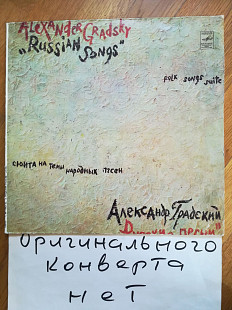 Alexander Gradsky
„Russian Songs"
folk songs suite
сюита на темы
народных песен
Александр Градский
Оригинального
конверта
нет